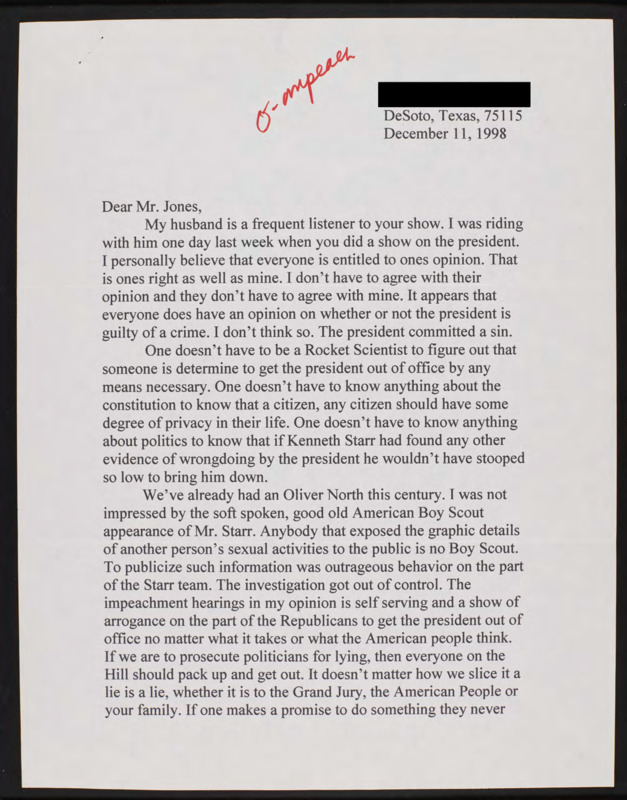 o-impeach
DeSoto, Texas, 75115
December 11, 1998
Dear Mr. Jones,
My husband is a frequent listener to your show. I was riding
with him one day last week when you did a show on the president.
I personally believe that everyone is entitled to ones opinion. That
is ones right as well as mine. I don't have to agree with their
opinion and they don't have to agree with mine. It appears that
everyone does have an opinion on whether or not the president is
guilty of a crime. I don't think so. The president committed a sin.
One doesn't have to be a Rocket Scientist to figure out that
someone is determine to get the president out of office by any
means necessary. One doesn't have to know anything about the
constitution to know that a citizen, any citizen should have some
degree of privacy in their life. One doesn't have to know anything
about politics to know that if Kenneth Starr had found any other
evidence of wrongdoing by the president he wouldn't have stooped
so low to bring him down.
We've already had an Oliver North this century. I was not
impressed by the soft spoken, good old American Boy Scout
appearance of Mr. Starr. Anybody that exposed the graphic details
of another person's sexual activities to the public is no Boy Scout.
To publicize such information was outrageous behavior on the part
of the Starr team. The investigation got out of control. The
impeachment hearings in my opinion is self serving and a show of
arrogance on the part of the Republicans to get the president out of
office no matter what it takes or what the American people think.
If we are to prosecute politicians for lying, then everyone on the
Hill should pack up and get out. It doesn't matter how we slice it a
lie is a lie, whether it is to the Grand Jury, the American People or
your family. If one makes a promise to do something they never